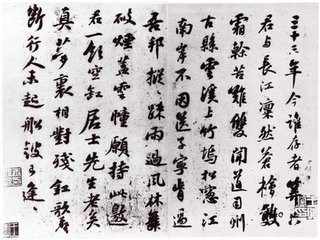 三十三年今誰存者算只
君与長江凛然蒼檜
霜幹苦難雙聞道司州
古縣雲溪上竹塢松窓江
南岸不因送子寧肯過
吾邦摐〻疎雨過風林舞
破煙蓋雲幢願持此邀
君一飲空缸居士先生老矣
真夢裏相對殘釭歌聲
斷行人未起船鼓已逢〻